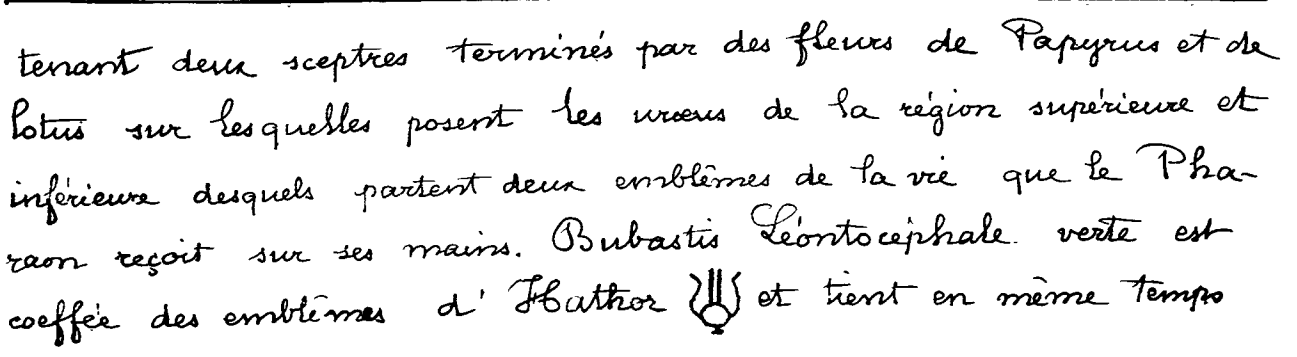 tenant deux sceptres terminés par des fleurs de Papyrus et de
lotus sur lesquelles posent les uræus de la région supérieure et
inférieure desquels partent deux emblêmes de la vie que le Pha-
raon reçoit sur ses mains. Bubastis Léontocéphale verte est
coeffée des emblêmes d'Hathor et tient en même temps